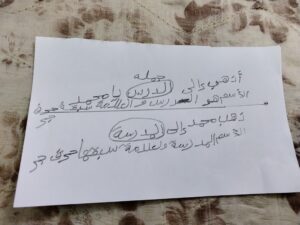 جمله
أذهب إلى الدرس يا محمد
الاسم هو الدرس و العلامة سبقه حرف جر
ذهب محمد إلى المدرسة
الاسم المدرسة والعلامة سبقها حرف جر